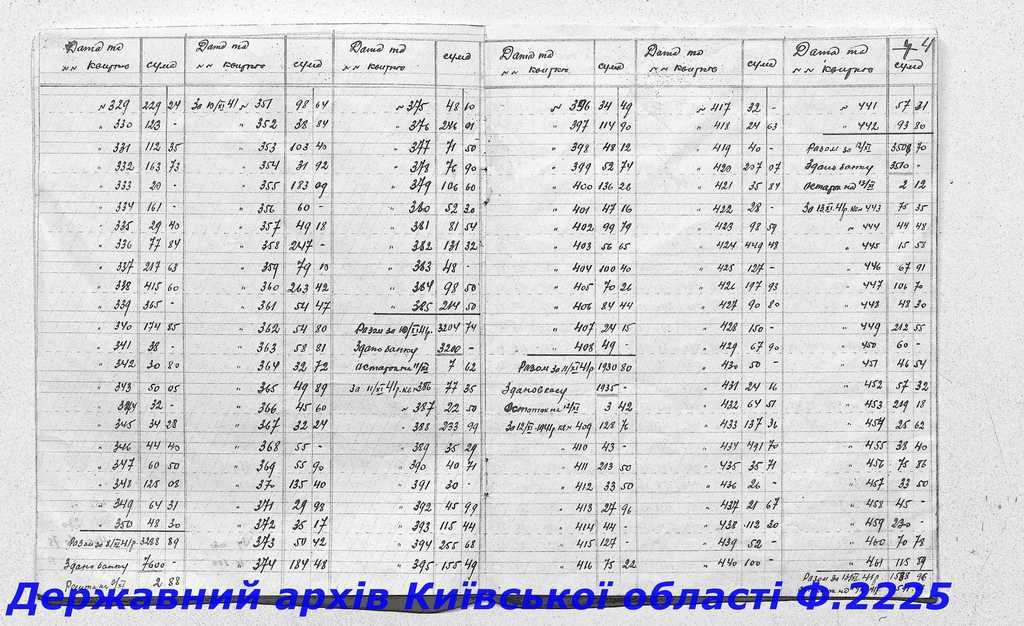 4
Дата та
№№ квитков
сума
№ 329 229 24
" 330 123 -
" 331 112 35
" 332 163 73
" 333 20 -
" 334 161 -
" 335 29 40
" 336 77 84
" 337 217 63
" 338 415 60
" 339 365 -
" 340 174 85
" 341 38 -
" 342 30 80
" 343 50 05
" 344 32 -
" 345 34 28
" 346 44 40
" 347 60 50
" 348 125 08
" 349 64 31
" 350 48 30
Разом за 8/XI 41р. 89
Здано банку 7600 -
2 88
Дата та
№№ квитков
сума
За 10/XI 41 № 351 98 64
" 352 38 84
" 353 103 40
" 354 31 92
" 355 183 09
" 356 60 -
" 357 49 18
" 358 247 -
" 359 79
" 360 263 42
" 361 51 47
" 362 54 80
" 363 58 81
" 364 32 72
" 365 49 89
" 366 45 60
" 367 32 24
" 368 55 -
" 369 55 90
" 370 135 40
" 371 29 98
" 372 35 17
" 373 50 42
" 374 184 48
Дата та
№№ квитков
сума
№ 375 48 10
" 376 246 01
" 377 71 50
" 378 76 90
" 379 106 60
" 380 52 30
" 381 81 54
" 382 131 32
" 383 48 -
" 384 98 50
" 385 214 50
Разом за 10/XI 41р. 3204 74
Здано банку 3200 -
Остаток на 11/XI 7 62
За 11/XI 41р. кв № 386 77 35
№ 387 22 50
" 388 233 99
" 389 35 29
" 390 40 71
" 391 30 -
" 392 45 99
" 393 115 44
" 394 255 68
" 395 155 49
Дата та
№№ квитков
сума
№ 396 34 49
" 397 114 90
" 398 48 12
" 399 52 74
" 400 136 26
" 401 47 16
" 402 99 79
" 403 56 65
" 404 100 40
" 405 70 26
" 406 84 44
" 407 24 15
" 408 49 -
Разом за 11/XI 41р 1930 80
Здано в касу 1935 -
Остаток на 12/XI 3 42
За 12/XI-1941р кв № 409 128 76
" 410 43 -
" 411 213 50
" 412 33 50
" 413 27 96
" 414 44 -
" 415 127 -
" 416 75 22
Дата та
№№ квитков
сума
№ 417 32 -
" 418 24 63
" 419 40 -
" 420 207 07
" 421 35 84
" 422 28 -
" 423 98 59
" 424 449 43
" 425 127 -
" 426 197 93
" 427 90 80
" 428 150 -
" 429 67 90
" 430 50 -
" 431 24 16
" 432 64 51
" 433 137 36
" 434 491 70
" 435 35 71
" 436 26 -
" 437 21 67
" 438 112 30
" 439 52 -
" 440 100 -
Дата та
№№ квитков
сума
№ 441 57 31
" 442 93 80
Разом за 12/XI 3508 70
Здано банку 3510 -
Остаток на 13/XI 2 12
За 13/XI 41р. кв № 443 75 35
№ 444 44 48
" 445 15 58
" 446 67 91
" 447 106 70
" 448 48 30
" 449 212 55
" 450 60 -
" 451 46 54
" 452 57 32
" 453 219 18
" 454 25 62
" 455 38 40
" 456 75 86
" 457 33 50
" 458 45 -
" 459 230 -
" 460 70 78
" 461 115 59
Разом за 13/XI 41р. 96
Державний архів Київської області Ф.2225